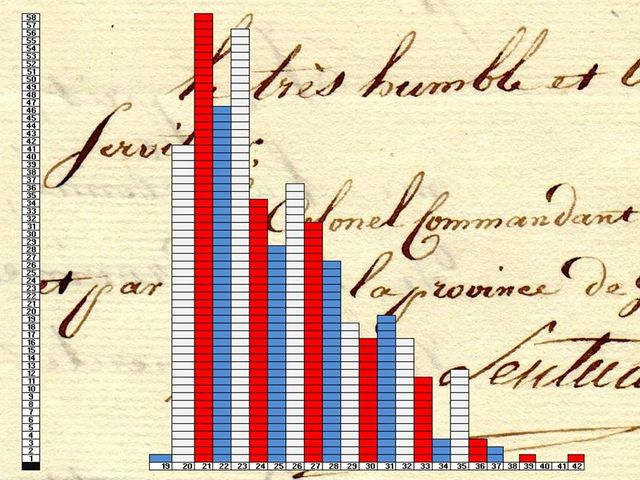 58
57
56
55
54
53
52
51
50
49
48
47
46
45
44
43
42
41
40
39
38
37
36
35
34
33
32
31
30
29
28
27
26
25
24
23
22
21
20
19
18
17
16
15
14
13
12
11
10
9
8
7
6
5
4
3
2
1
très humble et
Servi
Colonel Commandant
et par la province de
19 20 21 22 23 24 25 26 27 28 29 30 31 32 33 34 35 36 37 38 39 40 41 42